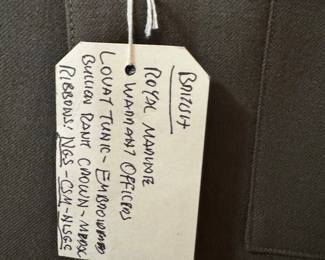 BRITISH
ROYAL MARINE
WARRANT OFFICERS
LOVAT TUNIC - EMBROIDERED
BULLION RANK CROWN -
RIBBONS: NGS - CSM - NLSGC